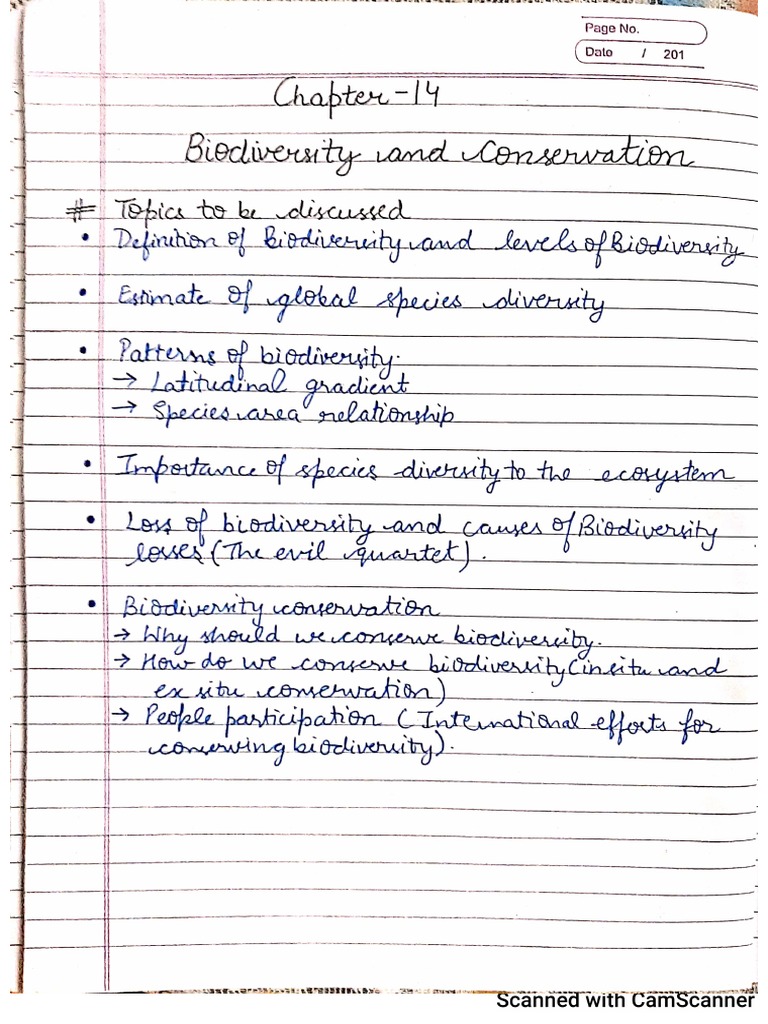 Page No.
Date / 201
Chapter-14
Biodiversity and Conservation
# Topics to be discussed
• Definition of Biodiversity and levels of Biodiversity
• Estimate of global species diversity
• Patterns of biodiversity.
→ Latitudinal gradient
→ Species area relationship
• Importance of species diversity to the ecosystem
• Loss of biodiversity and causes of Biodiversity
losses (The evil quartet).
• Biodiversity conservation
→ Why should we conserve biodiversity.
→ How do we conserve biodiversity (insitu and
ex situ conservation)
→ People participation (International efforts for
conserving biodiversity).
Scanned with CamScanner